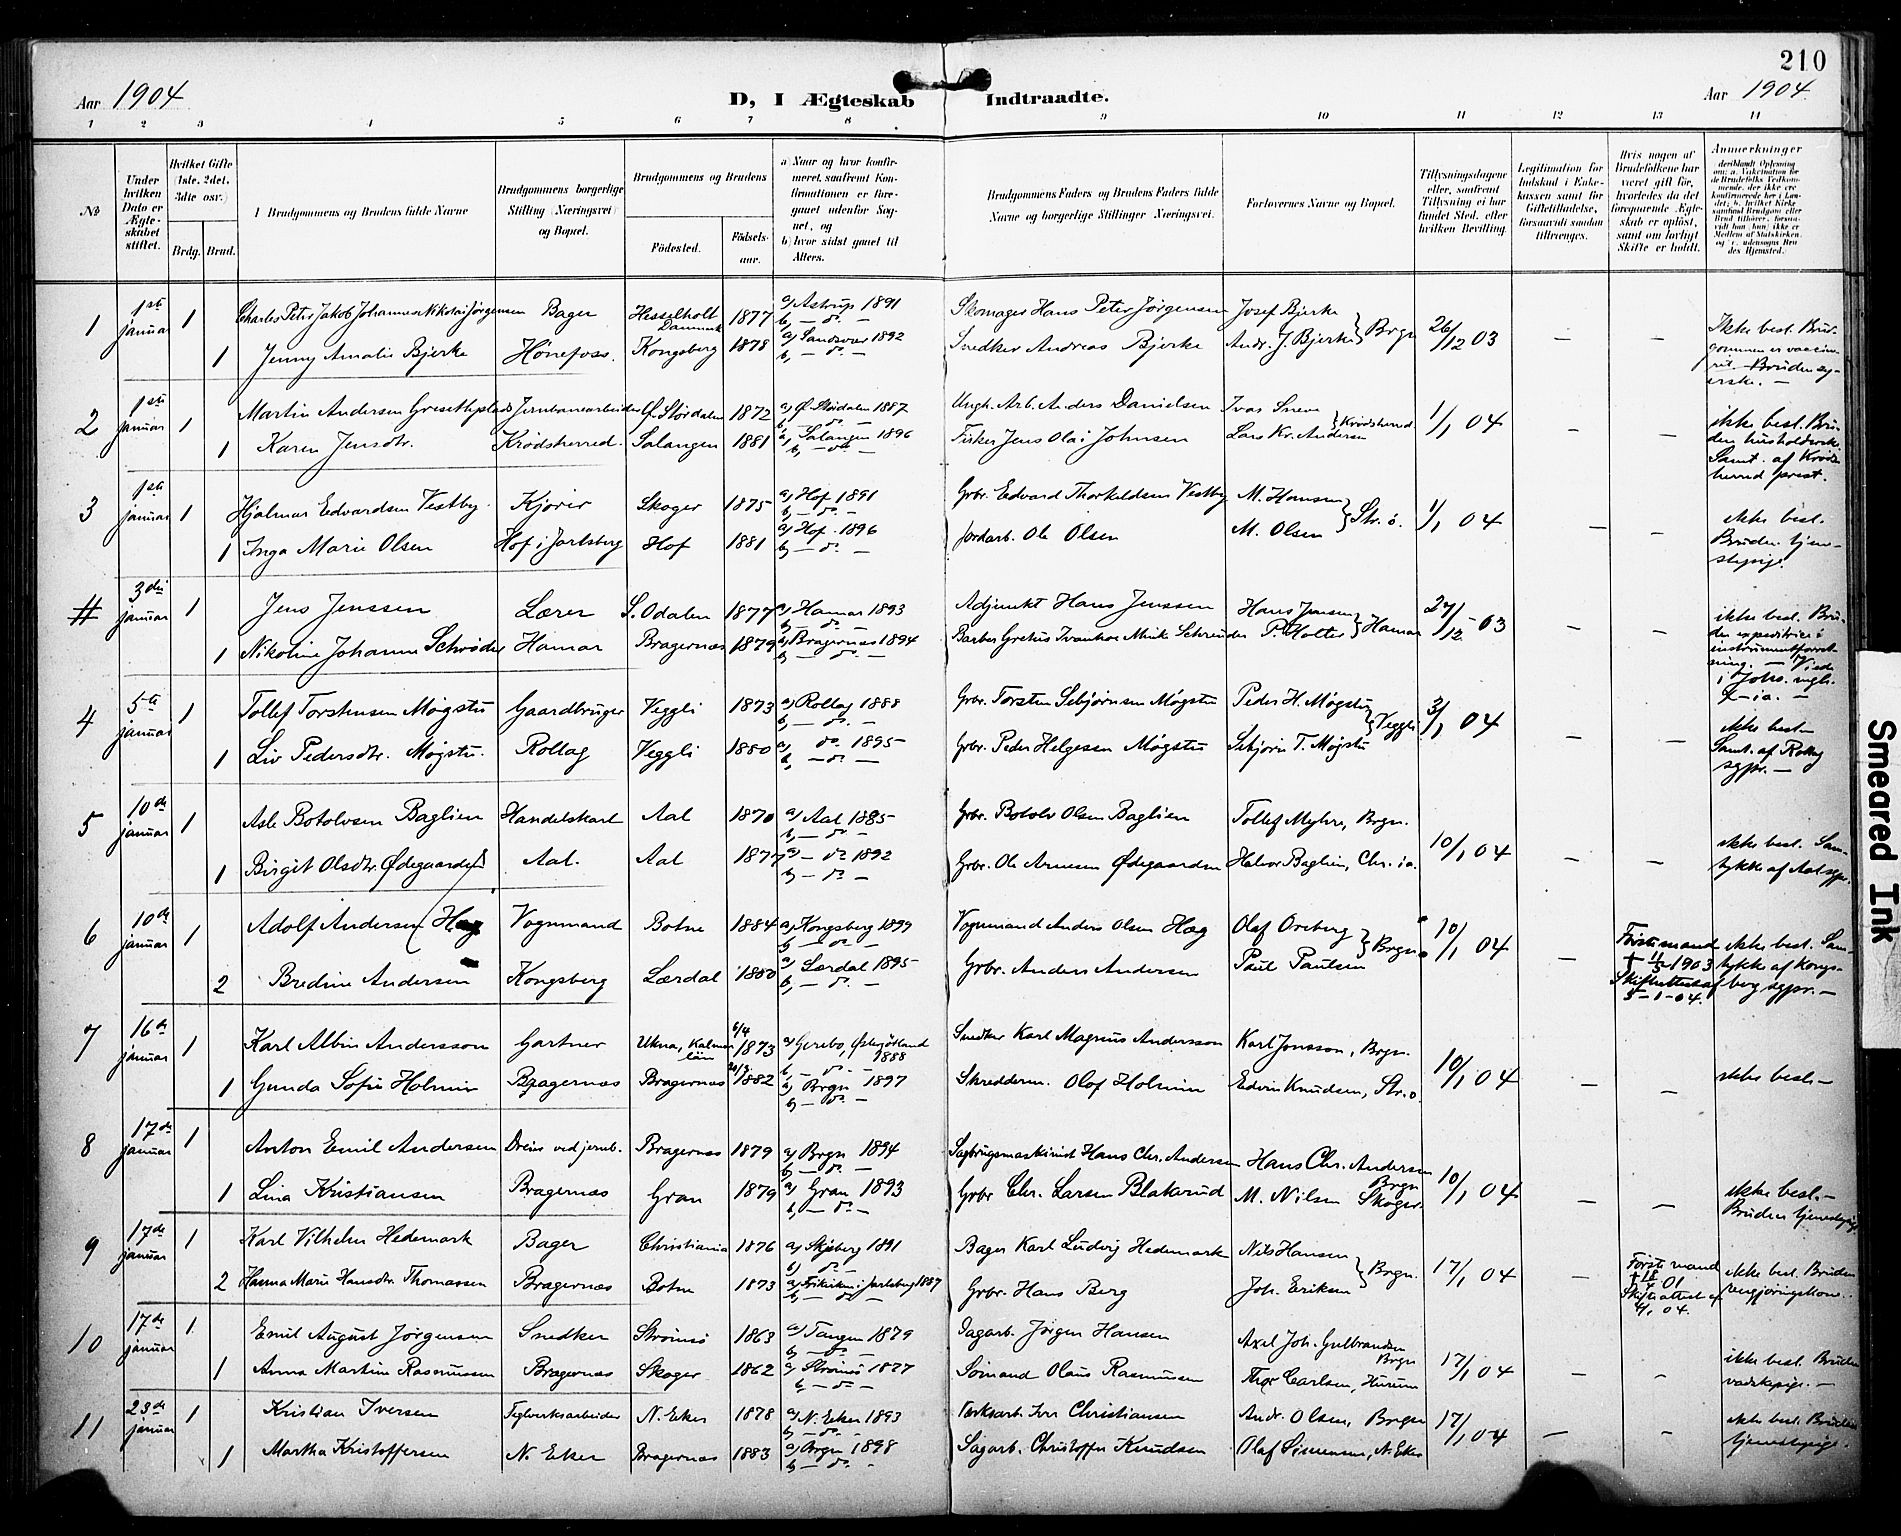 210
Aar 1904
D, I Ægteskab Indtraadte.
Aar 1904.
1 2 3 4 5 6 7 8 9 10 11 12 13 14
№
Under hvilken Dato er Ægteskabet stiftet.
Hvilket Gifte (1ste, 2det, 3die osv.)
Brdg. Brud.
Brudgommens og Brudens fulde Navne
Brudgommens borgerlige Stilling (Næringsvei) og Bopæl.
Brudgommens og Brudens
Fødested. Fødselsaar.
a) Naar og hvor konfirmeret, saafremt Konfirmationen er foregaaet udenfor Sognet, og
b) hvor sidst gaaet til Alters.
Brudgommens Faders og Brudens Faders fulde Navne og borgerlige Stillinger Næringsvei.
Forlovernes Navne og Bopæl.
Tillysningsdagene eller, saafremt Tillysning ei har fundet Sted, efter hvilken Bevilling.
Legitimation for Indskud i Enkekassen samt for Giftetilladelse, forsaavidt saadan tiltrænges.
Hvis nogen af Brudefolkene har været gift før, hvorledes da det foregaaende Ægteskab er opløst, samt om lovligt Skifte er holdt.
Anmærkninger
1 1ste januar 1 Charles Peter Jakob Johannes Nikolai Jørgensen Bager Hesselholt Danmark 1877 a) Astrup 1891 b) — do. — Skomager Hans Peter Jørgensen Josef Bjerke
1 Jenny Amalie Bjerke Hønefoss. Kongsberg 1878 a) Sandsvær 1892 b) — do. — Snedker Andreas Bjerke Andr. J. Bjerke } Brgn 26/12 03 — — Ikke besl. Brudgommen er vaccineret. Bruden syerske. —
2 1ste januar 1 Martin Andersen Gresethplads Jernbanearbeider Ø. Størdalen 1872 a) Ø. Størdalen 1887 b) — do. — Ungk. Arb. Anders Danielsen Ivar Sneve
1 Karen Jensdtr. Krødsherred. Salangen 1881 a) Salangen 1896 b) — do. — Fisker Jens Olai Johnsen Lars Kr. Andersen } Krødsherred. 1/1 04 — — ikke besl. Bruden husholderske. Samt. af Krødsherred prest.
3 1ste januar 1 Hjalmar Edvardsen Vestby. Kjører Skoger 1875 a) Hof 1891 b) — do. — Grbr. Edvard Thorkildsen Vestby M. Hansen
1 Inga Marie Olsen Hof i Jarlsberg Hof 1881 a) Hof 1896 b) — do. — Jordarb. Ole Olsen M. Olsen } Str. ö. 1/1 04 — — ikke besl. Bruden tjenestepige.
# 3die januar 1 Jens Jenssen Lærer S. Odalen 1877 a) Hamar 1893 b) — do. — Adjunkt Hans Jenssen Hans Jensen
1 Nikoline Johanne Schrøder Hamar Bragernæs 1879 a) Bragernæs 1894 b) — do. — P. Holter } Hamar 27/12 - 03 — — ikke besl. Bruden expeditrice i instrumentforretning. — Viede i Johs. mgh. X-ia. —
4 5te januar 1 Tollef Torstensen Møgstu Gaardbruger Veggli 1873 a) Rollag 1888 b) — do. — Grbr. Torsten Sebjørnsen Møgstu Peder H. Møgstu
1 Liv Pedersdtr. Møgstu. Rollag Veggli 1880 a) do. 1895 b) — do. — Grbr. Peder Helgesen Møgstu Sebjørn T. Møgstu } Veggli 3/1 04 — — ikke besl. — Samt. af Rollag sgpr. —
5 10de januar 1 Asle Botolvsen Baglien Handelskarl Aal 1870 a) Aal 1885 b) — do. — Grbr. Botolv Olsen Baglien Tollef Myhre, Brgn.
1 Birgit Olsdtr. Ødegaarden Aal. Aal 1877 a) — do. 1892 b) — do. — Grbr. Ole Arnesen Ødegaarden Halvor Baglien, Chr. ia. 10/1 04 — — ikke besl. Samtykke af Aal sgpr.
6 10de januar 1 Adolf Andersen Hæg Vognmand Botne 1884 a) Kongsberg 1899 b) — do. — Vognmand Anders Olsen Hæg Olaf Oreberg
2 Bredine Andersen Kongsberg Lærdal 1880 a) Lærdal 1895 b) — do. — Grbr. Anders Andersen Paul Paulsen } Brgn. 10/1 04 — Første mand + 11/5 1903 Skifteattest af 5-1-04. ikke besl. Samtykke af Kongsberg sgpr. —
7 16de januar 1 Karl Albin Andersson Gartner Ukna, Kalmar län 6/4 1873 a) Gerebo, Østergötland 1888 b) — do. — Snedker Karl Magnus Andersson Karl Jonsson, Brgn.
1 Gunda Sofie Holmin Bragernæs Bragernæs 1882 a) Brgn 1897 b) — do. — Skredderm. Olof Holmin Edvin Knudsen, Str. ö. 10/1 04 — — ikke besl. —
8 17de januar 1 Anton Emil Andersen Dreier ved jernb. Bragernæs 1879 a) Brgn 1894 b) — do. — Sagbrugsmaskinist Hans Chr. Andersen Hans Chr. Andersen Brgn
1 Lina Kristiansen Bragernæs Gran 1879 a) Gran 1893 b) — do. — Grbr Chr. Larsen Blakerud M. Nilsen Skoger. 10/1 04 — — ikke besl. — Bruden tjenestepige
9 17de januar 1 Karl Vilhelm Hedemark Bager Christiania 1876 a) Skjeberg 1891 b) — do. — Bager Karl Ludvig Hedemark Nils Hansen
2 Hanna Marie Hansdtr. Thomassen Bragernæs Botne 1873 i Jarlsberg 1887 b) — do. — Grbr. Hans Berg Joh. Eriksen } Brgn. 17/1 04 — Første mand + 18/4 01 Skifteattest af 4/1 04. ikke besl. Bruden rengjøringskone.
10 17de januar 1 Emil August Jørgensen Snedker Strømsö 1863 a) Tangen 1879 b) — do. — Dagarb. Jørgen Hansen Axel Joh. Gulbrandsen Brgn
1 Anna Martine Rasmussen Bragernæs Skoger 1862 a) Strømsö 1877 b) — do. — Sömand Olaus Rasmussen Thor Carlsen, Hurum 17/1 04 — — ikke besl. Bruden vaskepige. —
11 23de januar 1 Kristian Iversen Teglverksarbeider N. Eker 1878 a) N. Eker 1893 b) — do. — Verksarb. Iver Christiansen Andr. Olsen, Brgn
1 Martha Kristoffersen N. Eker Bragernæs 1883 a) Brgn 1898 b) — do. — Sagarb. Christoffer Knudsen Olaf Simensen, N. Eker 17/1 04 — — ikke besl. Bruden tjenestepige.
Smeared Ink